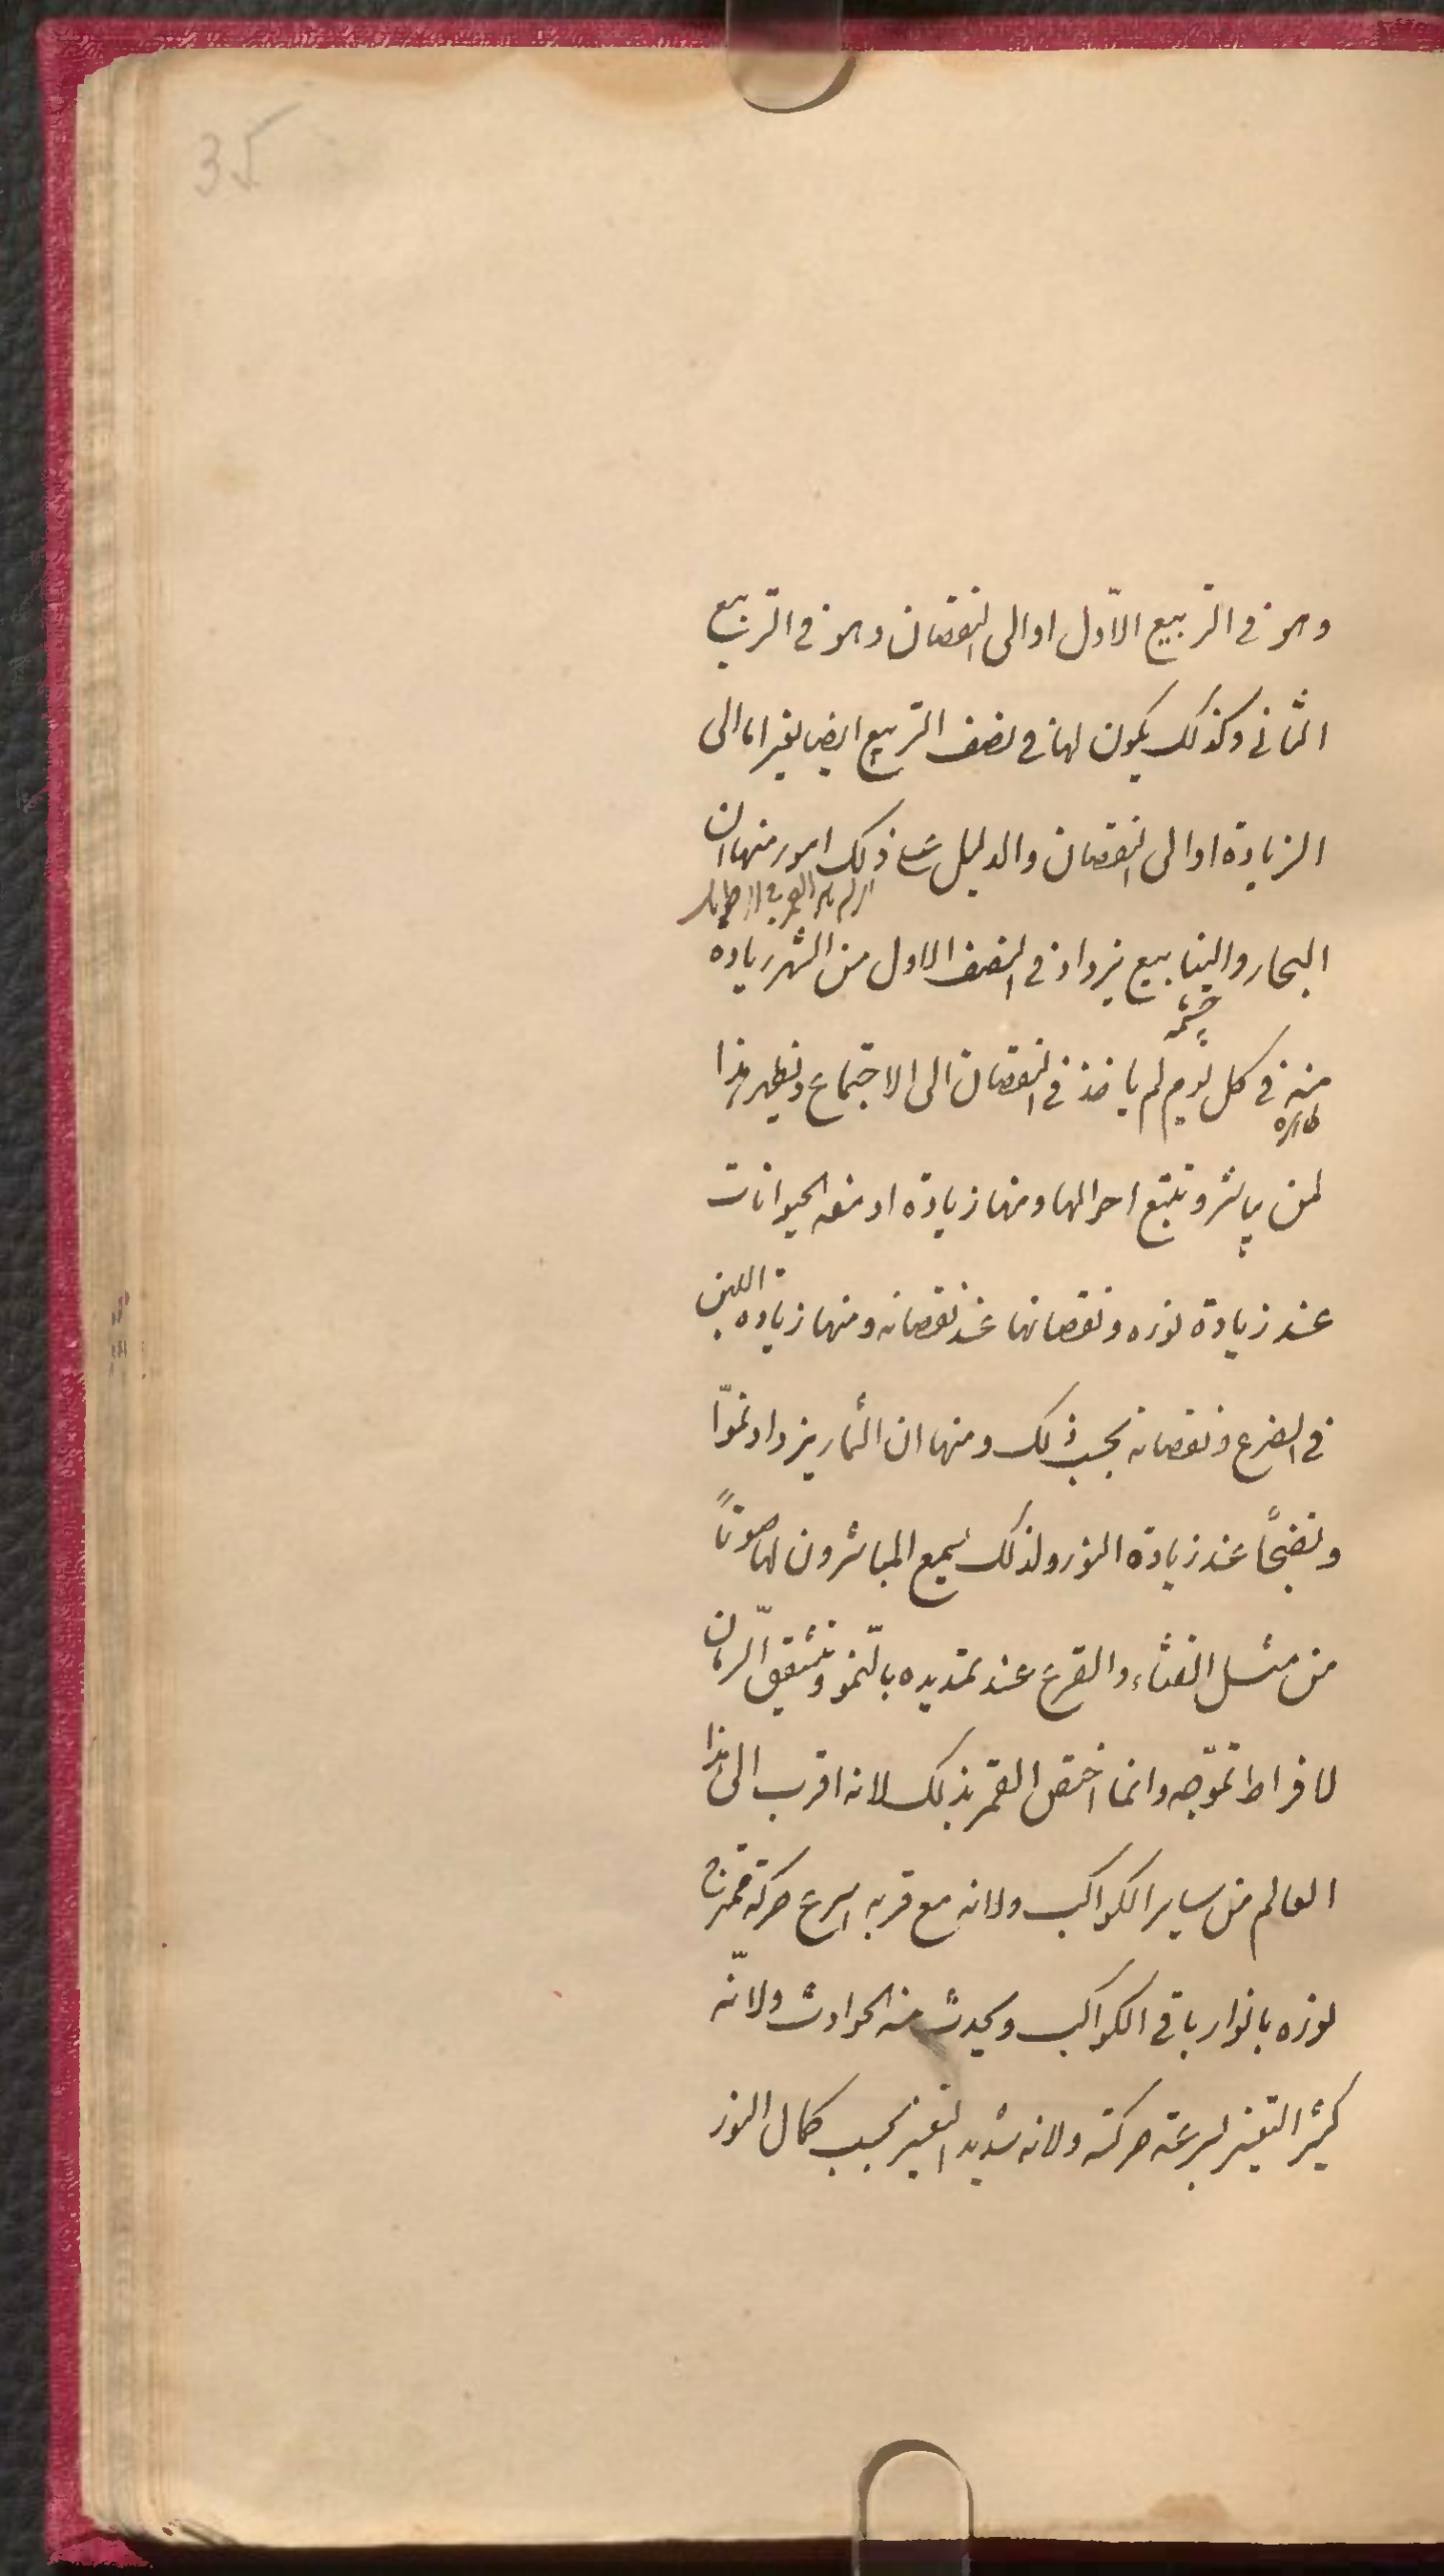 35
وهو فى التربيع الاوّل او الى النقصان وهو فى التربيع
الثانى وكذلك يكون لها فى نصف التربيع ايضا تغير اما الى
الزيادة او الى النقصان والدليل على ذلك امور منها ان
البحار والينابيع يزداد فى النصف الاول من الشهر زياده
چشمه
منه فى كل يوم لم ياخذ فى النقصان الى الاجتماع ويظهر هذا
لمن يباشر و يتتبع احوالها ومنها زيادة ادمغه الحيوانات
عند زيادة نوره ونقصانها عند نقصانه ومنها زياده اللبن
فى الضرع ونقصانه بحسب ذلك ومنها ان الثمار يزداد نموّا
ونضجًا عند زيادة النور ولذلك يسمع المباشرون لها صوتاً
من مثل القثاء والقرع عند تمديده بالنّمو وتشقق الرّمان
لافراط تموّجه وانما اختص القمر بذلك لانه اقرب الى هذا
العالم من ساير الكواكب ولانه مع قربه اسرع حركة فيمزج
نوره بانوار باقى الكواكب ويحدث منه الحوادث ولانّه
كثير التغير لسرعة حركته ولانه شديد التغير بحسب كمال النور